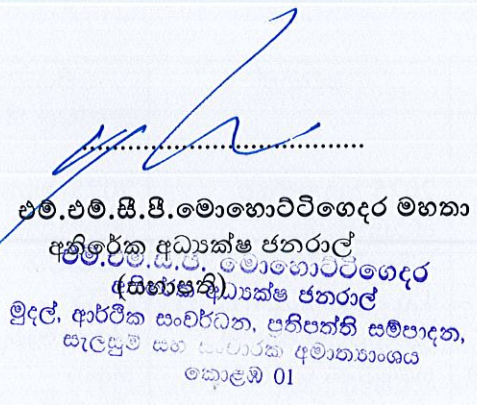 එම්.එම්.සී.පී.මොහොට්ටිගෙදර මහතා
අතිරේක අධ්‍යක්ෂ ජනරාල්
එම්.එම්.සී.පී. මොහොට්ටිගෙදර
(සභාපති)
අතිරේක අධ්‍යක්ෂ ජනරාල්
මුදල්, ආර්ථික සංවර්ධන, ප්‍රතිපත්ති සම්පාදන,
සැලසුම් සහ සංචාරක අමාත්‍යාංශය
කොළඹ 01